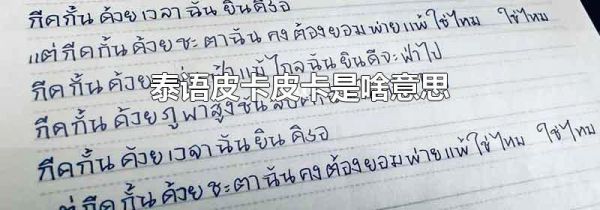 กีดกั้น ด้วย เวลา ฉัน ยินดีรอ
แต่ กีดกั้น ด้วย ชะตา ฉัน คง ต้อง ยอม พ่ายแพ้ ใช่ไหม ใช่ไหม
กีดกั้น ด้วย แม้ ไกล ฉัน ยินดี จะ ฝ่า ไป
泰语皮卡皮卡是啥意思
กีดกั้น ด้วย ภูผา สูงชัน
กีดกั้น ด้วย เวลา ฉัน ยินดีรอ
แต่ กีดกั้น ด้วย ชะตา ฉัน คง ต้อง ยอม พ่ายแพ้ ใช่ไหม ใช่ไหม